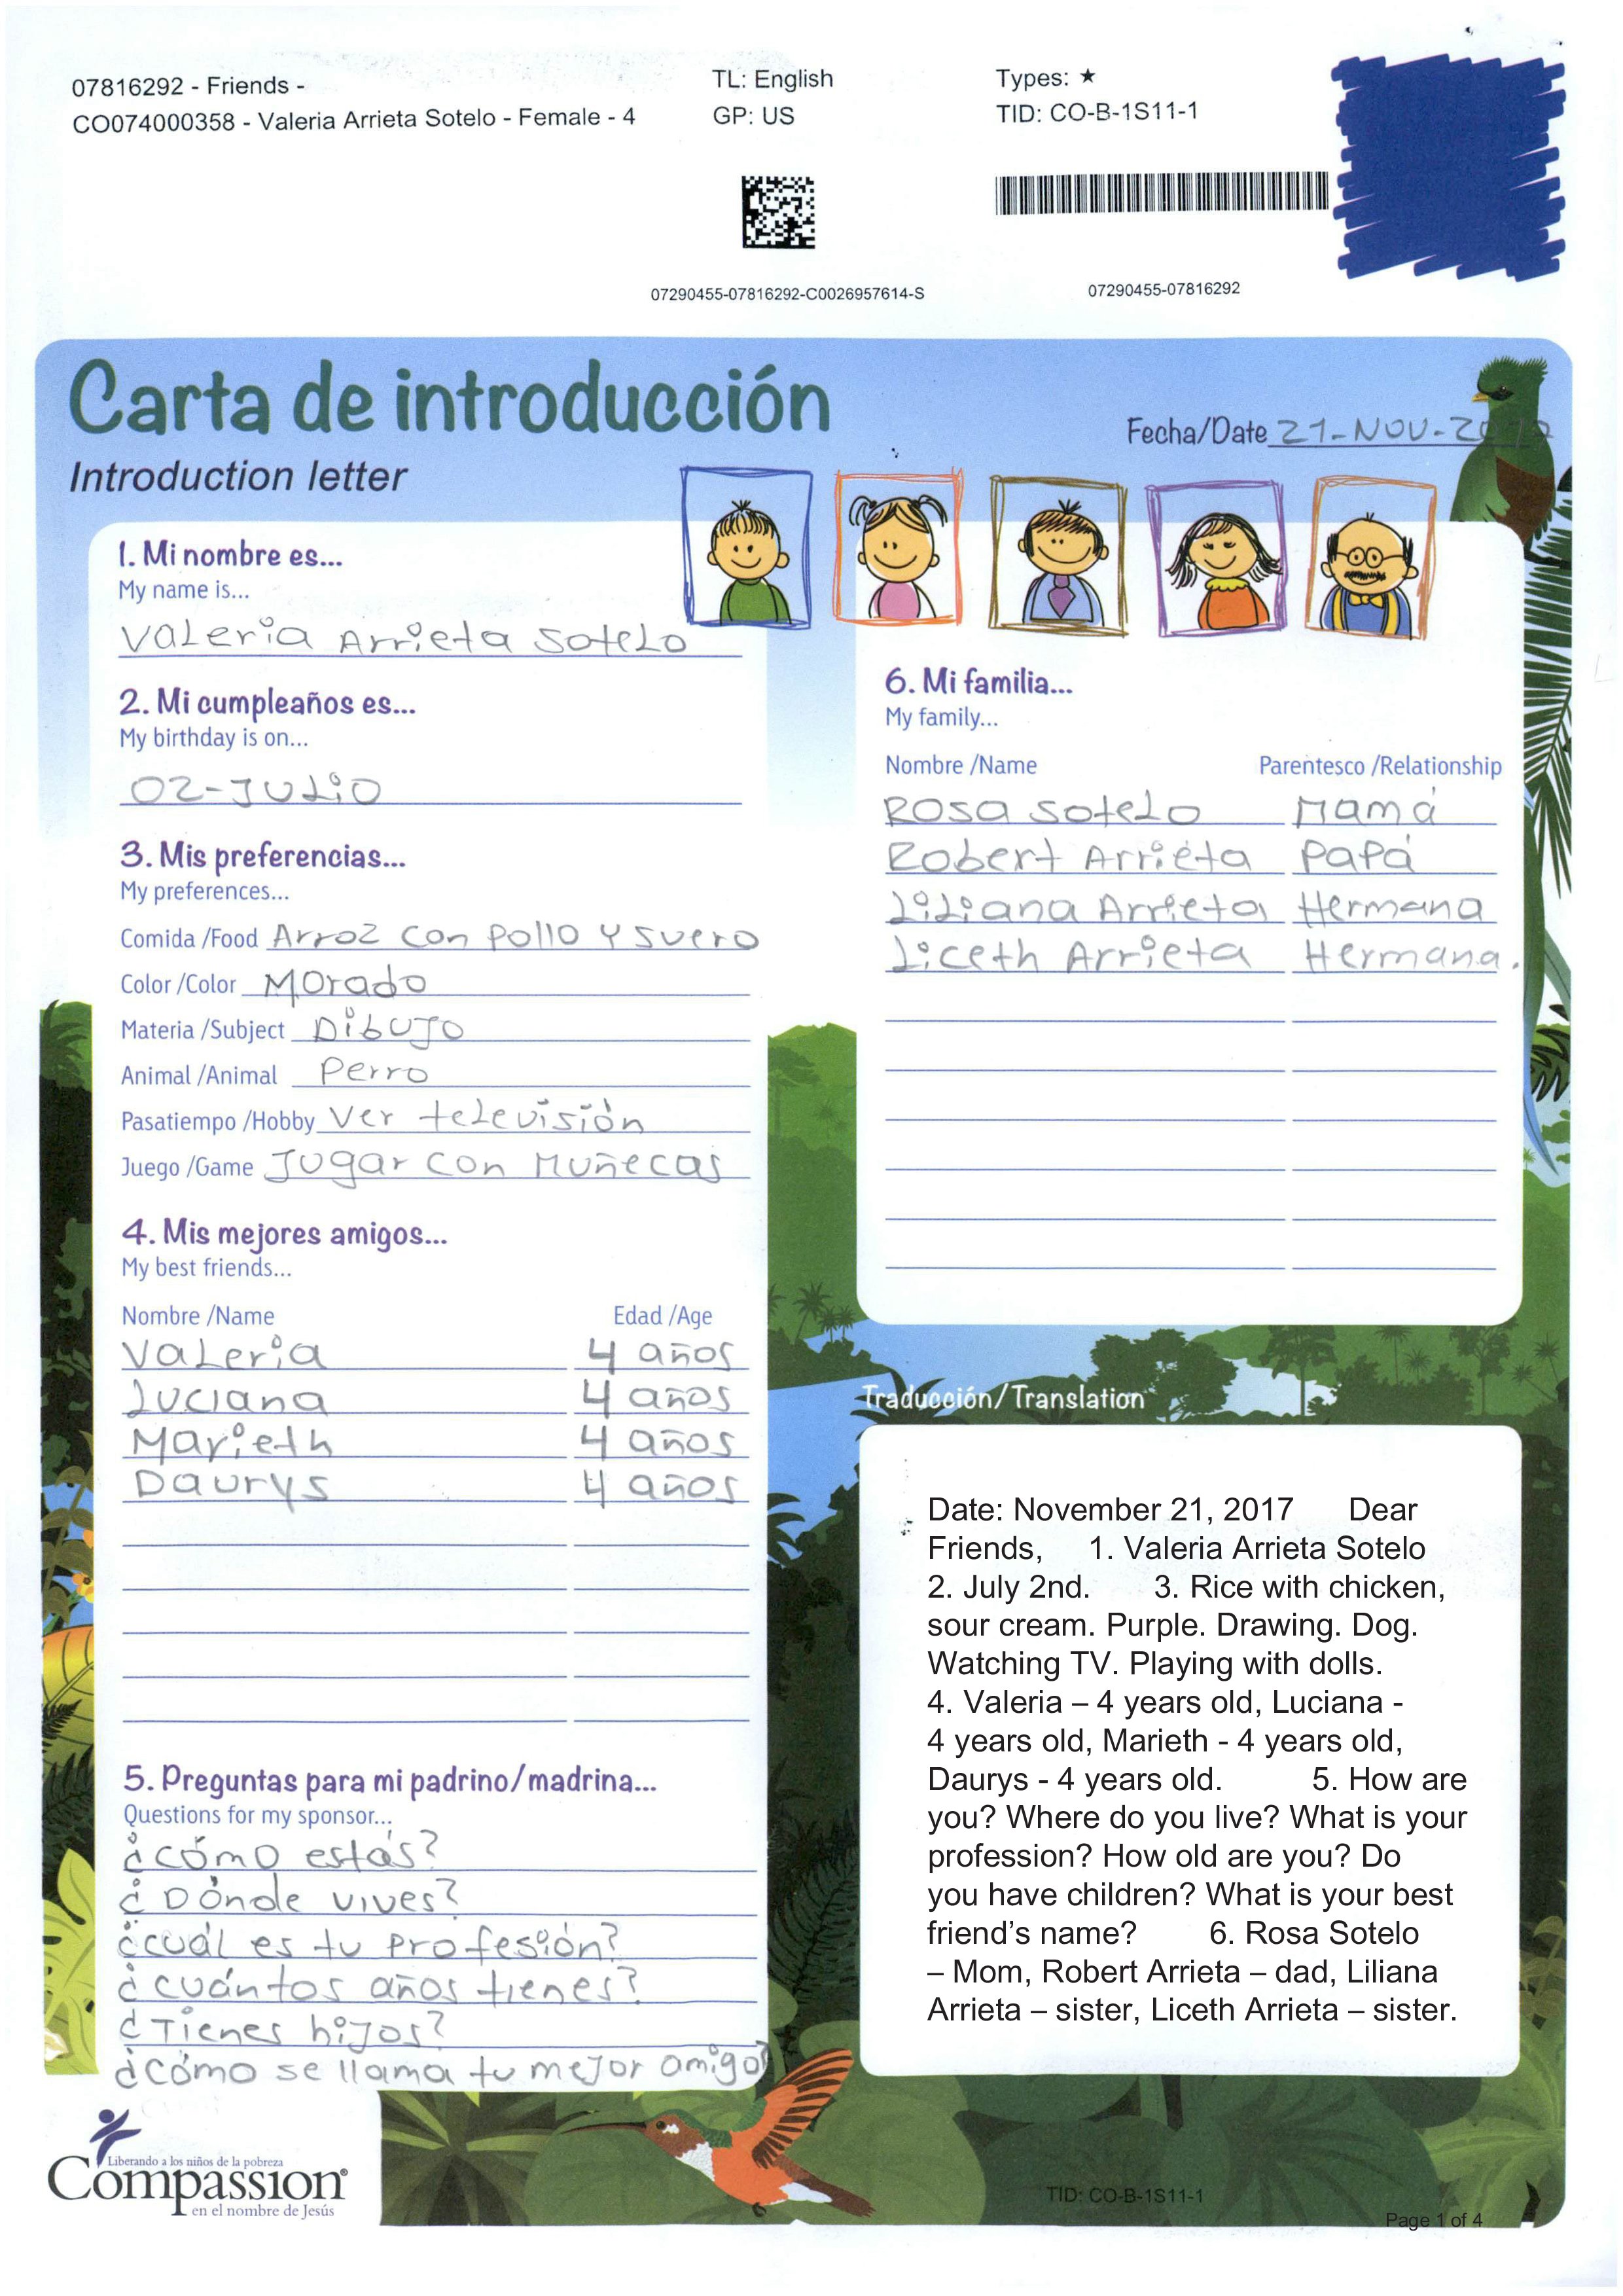 07816292 - Friends -
CO074000358 - Valeria Arrieta Sotelo - Female - 4
TL: English
GP: US
Types: ★
TID: CO-B-1S11-1
07290455-07816292-C0026957614-S
07290455-07816292
Carta de introducción
Introduction letter
Fecha/Date 21-NOV-2017
1. Mi nombre es...
My name is...
Valeria Arrieta Sotelo
2. Mi cumpleaños es...
My birthday is on...
02-JULIO
3. Mis preferencias...
My preferences...
Comida /Food Arroz con pollo y suero
Color /Color Morado
Materia /Subject Dibujo
Animal /Animal Perro
Pasatiempo /Hobby Ver televisión
Juego /Game Jugar con Muñecas
4. Mis mejores amigos...
My best friends...
Nombre /Name Edad /Age
Valeria 4 años
Luciana 4 años
Marieth 4 años
Daurys 4 años
5. Preguntas para mi padrino/madrina...
Questions for my sponsor...
¿cómo estás?
¿Dónde vives?
¿cuál es tu profesión?
¿cuántos años tienes?
¿Tienes hijos?
¿Cómo se llama tu mejor amigo?
6. Mi familia...
My family...
Nombre /Name Parentesco /Relationship
Rosa Sotelo Mamá
Robert Arriéta Papá
Liliana Arrieta Hermana
Liceth Arrieta Hermana.
Traducción/Translation
Date: November 21, 2017 Dear
Friends, 1. Valeria Arrieta Sotelo
2. July 2nd. 3. Rice with chicken,
sour cream. Purple. Drawing. Dog.
Watching TV. Playing with dolls.
4. Valeria – 4 years old, Luciana -
4 years old, Marieth - 4 years old,
Daurys - 4 years old. 5. How are
you? Where do you live? What is your
profession? How old are you? Do
you have children? What is your best
friend’s name? 6. Rosa Sotelo
– Mom, Robert Arrieta – dad, Liliana
Arrieta – sister, Liceth Arrieta – sister.
Liberando a los niños de la pobreza
Compassion®
en el nombre de Jesús
TID: CO-B-1S11-1
Page 1 of 4